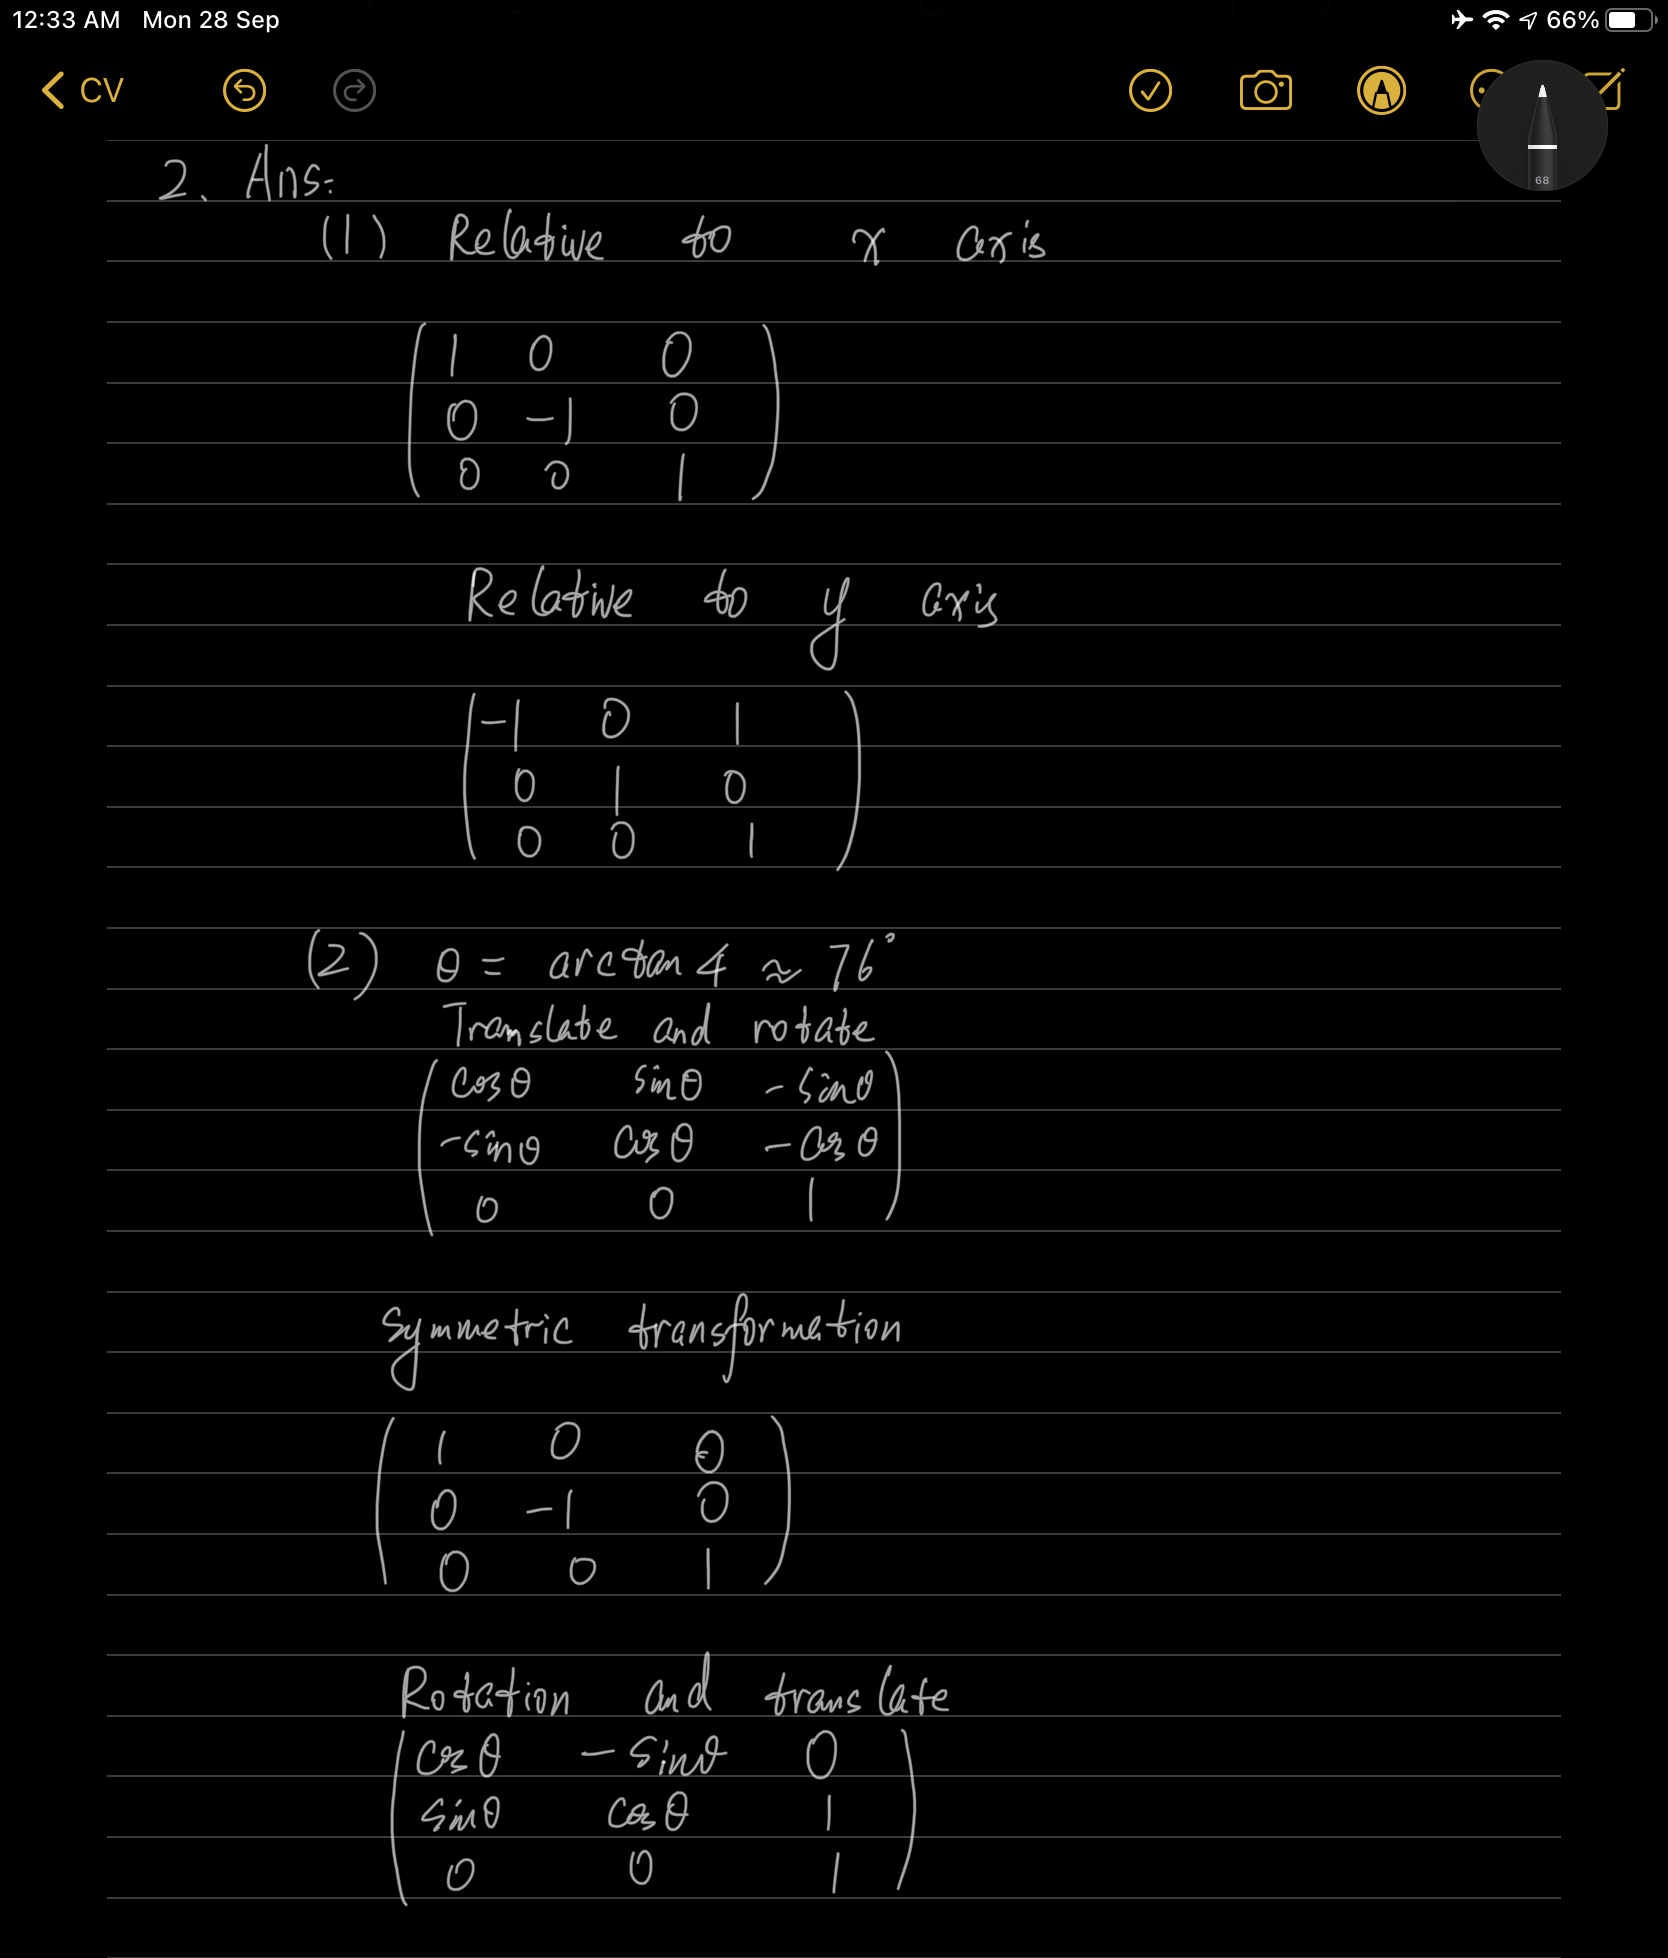 12:33 AM Mon 28 Sep 66%
CV
68
2. Ans:
(1) Relative to x axis
1 0 0
0 -1 0
0 0 1
Relative to y axis
-1 0 1
0 1 0
0 0 1
(2) θ = arctan 4 ≈ 76°
Translate and rotate
cosθ sinθ -sinθ
-sinθ cosθ -cosθ
0 0 1
Symmetric transformation
1 0 0
0 -1 0
0 0 1
Rotation and translate
cosθ -sinθ 0
sinθ cosθ 1
0 0 1